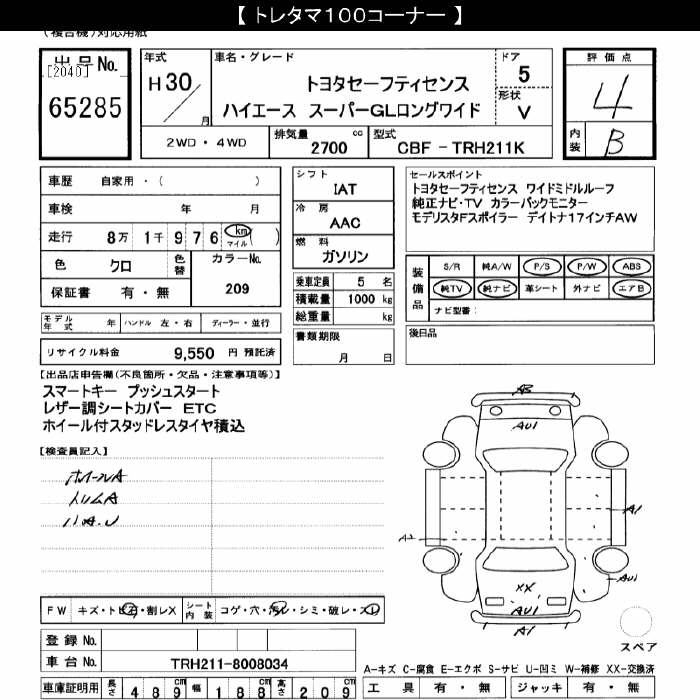 【 トレタマ100コーナー 】
(複合機)対応用紙
出品No.
[2040]
65285
年式
H30
月
車名・グレード
トヨタセーフティセンス
ハイエース スーパーGLロングワイド
ドア
5
形状
V
2WD・4WD
排気量
2700 cc
型式
CBF - TRH211K
評価点
4
内装
B
車歴 自家用・( )
車検 年 月
走行 8万 1千 9 7 6 km マイル ( )
色 クロ
色替
カラーNo.
209
保証書 有・無
モデル年式 年 ハンドル 左・右 ディーラー・並行
リサイクル料金 9,550 円 預託済
シフト
IAT
冷房
AAC
燃料
ガソリン
乗車定員 5 名
積載量 1000 kg
総重量 kg
書類期限
月 日
セールスポイント
トヨタセーフティセンス ワイドミドルルーフ
純正ナビ・TV カラーバックモニター
モデリスタFスポイラー デイトナ17インチAW
装備品
S/R 純A/W P/S P/W ABS
純TV 純ナビ 革シート 外ナビ エアB
ナビ型番:
後日品
【出品店申告欄(不良箇所・欠品・注意事項等)】
スマートキー プッシュスタート
レザー調シートカバー ETC
ホイール付スタッドレスタイヤ積込
【検査員記入】
ホイールA
トリムA
ハA.U
A3
AU1
A1
A2
AU1
XX
AU1
A1
FW キズ・トビ石・割レX
シート内装 コゲ・穴・汚レ・シミ・破レ・スレ
登録No.
車台No. TRH211-8008034
車庫証明用 長さ 489 cm 幅 188 cm 高さ 209 cm
スペア
A-キズ C-腐食 E-エクボ S-サビ U-凹ミ W-補修 XX-交換済
工具 有・無 ジャッキ 有・無